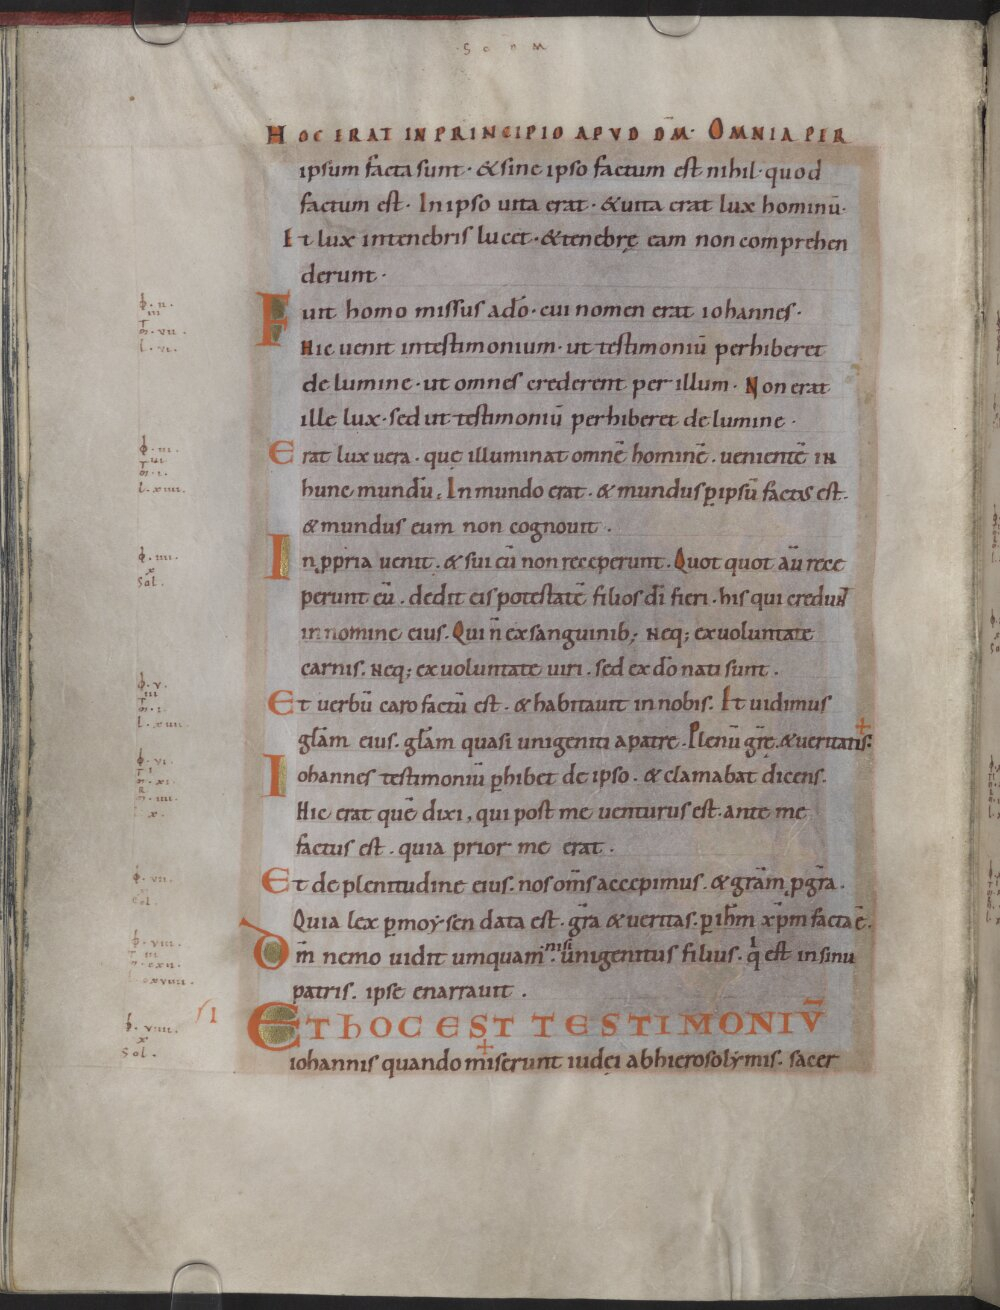 HOC ERAT IN PRINCIPIO APVD DM̅· OMNIA PER
ipsum facta sunt· & sine ipso factum est nihil· quod
factum est· In ipso uita erat· & uita erat lux hominū·
Et lux in tenebris lucet· & tenebrę eam non comprehen
derunt·
Fuit homo missus a dō· cui nomen erat iohannes·
Hic uenit in testimonium· ut testimoniū perhiberet
de lumine· ut omnes crederent per illum· Non erat
ille lux· sed ut testimoniū perhiberet de lumine·
Erat lux uera· quę illuminat omnē hominē· uenientē in
hunc mundū; In mundo erat· & mundus ꝑ ipsū factus est·
& mundus eum non cognouit·
In ꝓpria uenit· & sui eū non receperunt· Quot quot aū rece
perunt eū· dedit eis potestatē filios dī fieri· his qui credunt
in nomine eius· Qui n̄ ex sanguinib; neq; ex uoluntate
carnis· Neq; ex uoluntate uiri· sed ex dō nati sunt·
Et uerbū caro factū est· & habitauit in nobis· Et uidimus
gl̄am eius· gl̄am quasi unigeniti a patre· Plenū gr̄ę & ueritatis·
Iohannes testimoniū ꝑhibet de ipso· & clamabat dicens·
Hic erat quē dixi, qui post me uenturus est· ante me
factus est· quia prior me erat·
Et de plenitudine eius· nos om̄s accepimus· & gr̄am ꝓ gr̄a·
Quia lex ꝑ moysen data est· gr̄a & ueritas· ꝑ ihm̄ xp̄m facta ē·
Dm̄ nemo uidit umquam· nisi unigenitus filius· q̇ est in sinu
patris· ipse enarrauit·
ET HOC EST TESTIMONIV̅
iohannis quando miserunt iudęi ab hierosolymis· sacer